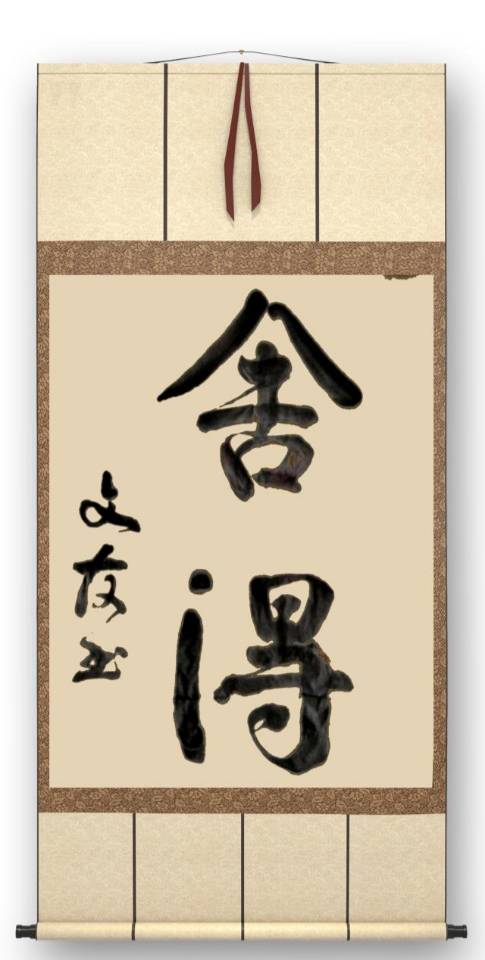 舍得
文友书